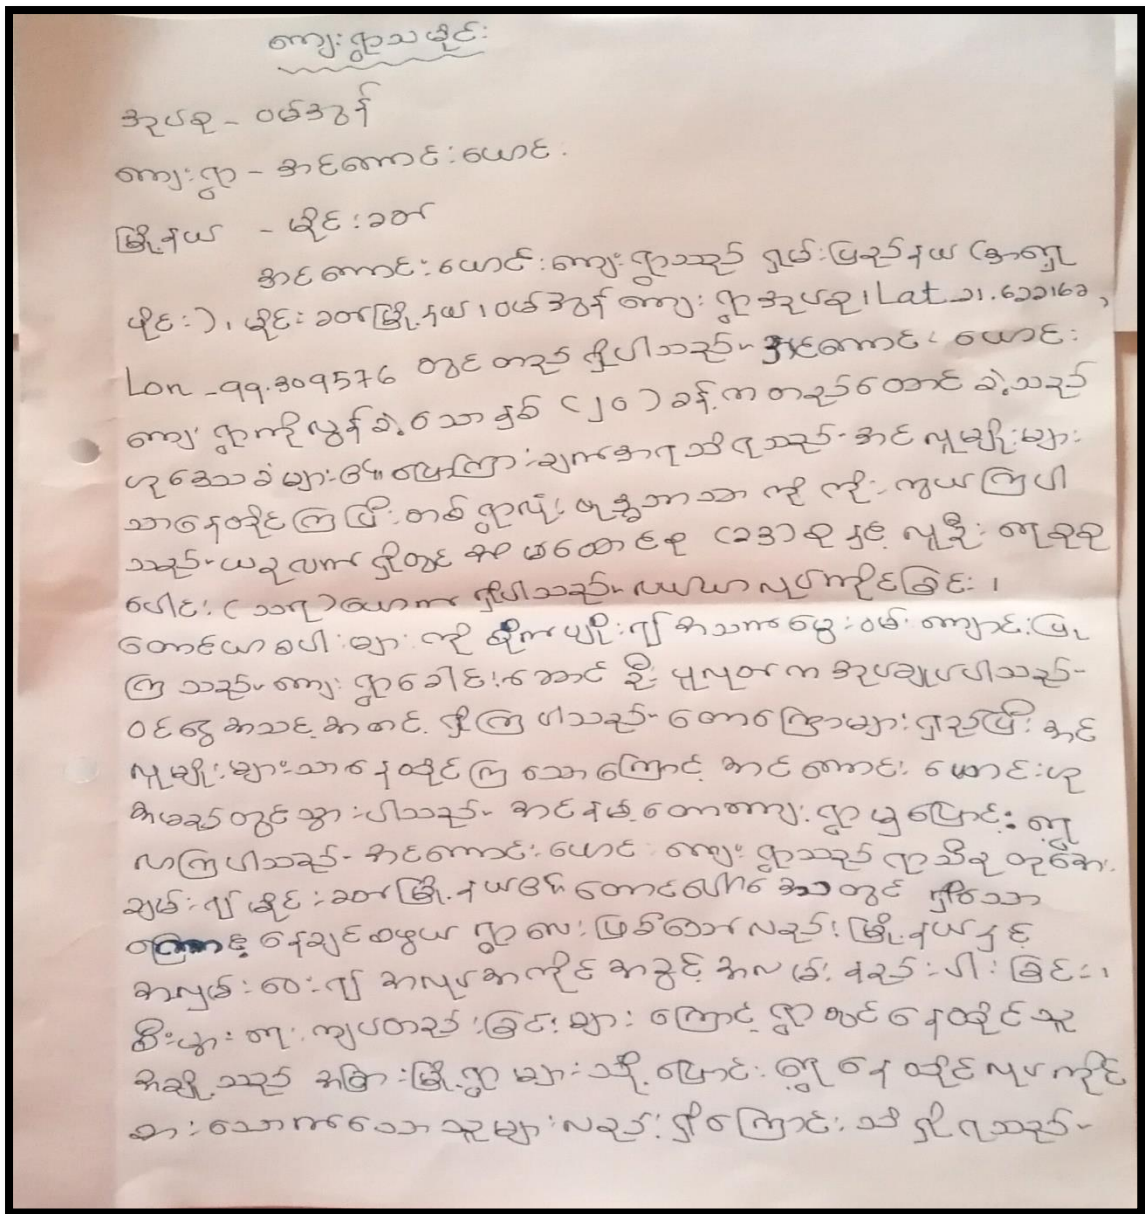 ကျေးရွာသမိုင်း
အုပ်စု - ဝမ်အွန်
ကျေးရွာ - အင်ကောင်းယောင်း
မြို့နယ် - မိုင်းခတ်
အင်ကောင်းယောင်းကျေးရွာသည် ရှမ်းပြည်နယ် (အရှေ့
ပိုင်း)၊ မိုင်းခတ်မြို့နယ်၊ ဝမ်အွန် ကျေးရွာအုပ်စု၊ Lat _ ၁၁.၆၁၁၁၆၁,
Lon _ 99.309576 တွင်တည်ရှိပါသည်။ အင်ကောင်းယောင်း
ကျေးရွာကိုလွန်ခဲ့သောနှစ် (၂၀) ခန့်ကတည်ထောင်ခဲ့သည်
ဟုဒေသခံများ၏ပြောကြားချက်အရသိရသည်။ အင်လူမျိုးများ
သာနေထိုင်ကြပြီးတစ်ရွာလုံးဗုဒ္ဓဘာသာကိုကိုးကွယ်ကြပါ
သည်။ ယခုလက်ရှိတွင် အိမ်ထောင်စု (၁၃) စုနှင့် လူဦးရေစုစု
ပေါင်း (သ၅) ယောက်ရှိပါသည်။ လယ်ယာလုပ်ကိုင်ခြင်း၊
တောင်ယာစပါးများကို စိုက်ပျိုး၍ အသက်မွေးဝမ်းကျောင်းပြု
ကြသည်။ ကျေးရွာခေါင်းဆောင် ဦး ကအုပ်ချုပ်ပါသည်။
ဝင်ငွေအသင့်အတင့်ရှိကြပါသည်။ တောကြောများရှည်ပြီးအင်
လူမျိုးများသာနေထိုင်ကြသောကြောင့် အင်ကောင်းယောင်းဟု
အမည်တွင်သွားပါသည်။ အင်နမ့်တောကျေးရွာမှပြောင်းရွှေ့
လာကြပါသည်။ အင်ကောင်းယောင်းကျေးရွာသည် ရာသီဥတုအေး
ချမ်း၍ မိုင်းခတ်မြို့နယ်၏တောင်ပေါ်ဒေသတွင် ရှိသော
နေချင်စဖွယ်ရွာလေးဖြစ်သော်လည်း မြို့နယ်နှင့်
အလှမ်းဝေး၍ အလုပ်အကိုင်အခွင့်အလမ်းနည်းပါးခြင်း၊
စီးပွားရေးကျပ်တည်းခြင်းများကြောင့် ရွာတွင်နေထိုင်သူ
အချို့သည် အခြားမြို့ရွာများသို့ပြောင်းရွှေ့နေထိုင်လုပ်ကိုင်
စားသောက်သောသူများလည်းရှိကြောင်းသိရှိရသည်။